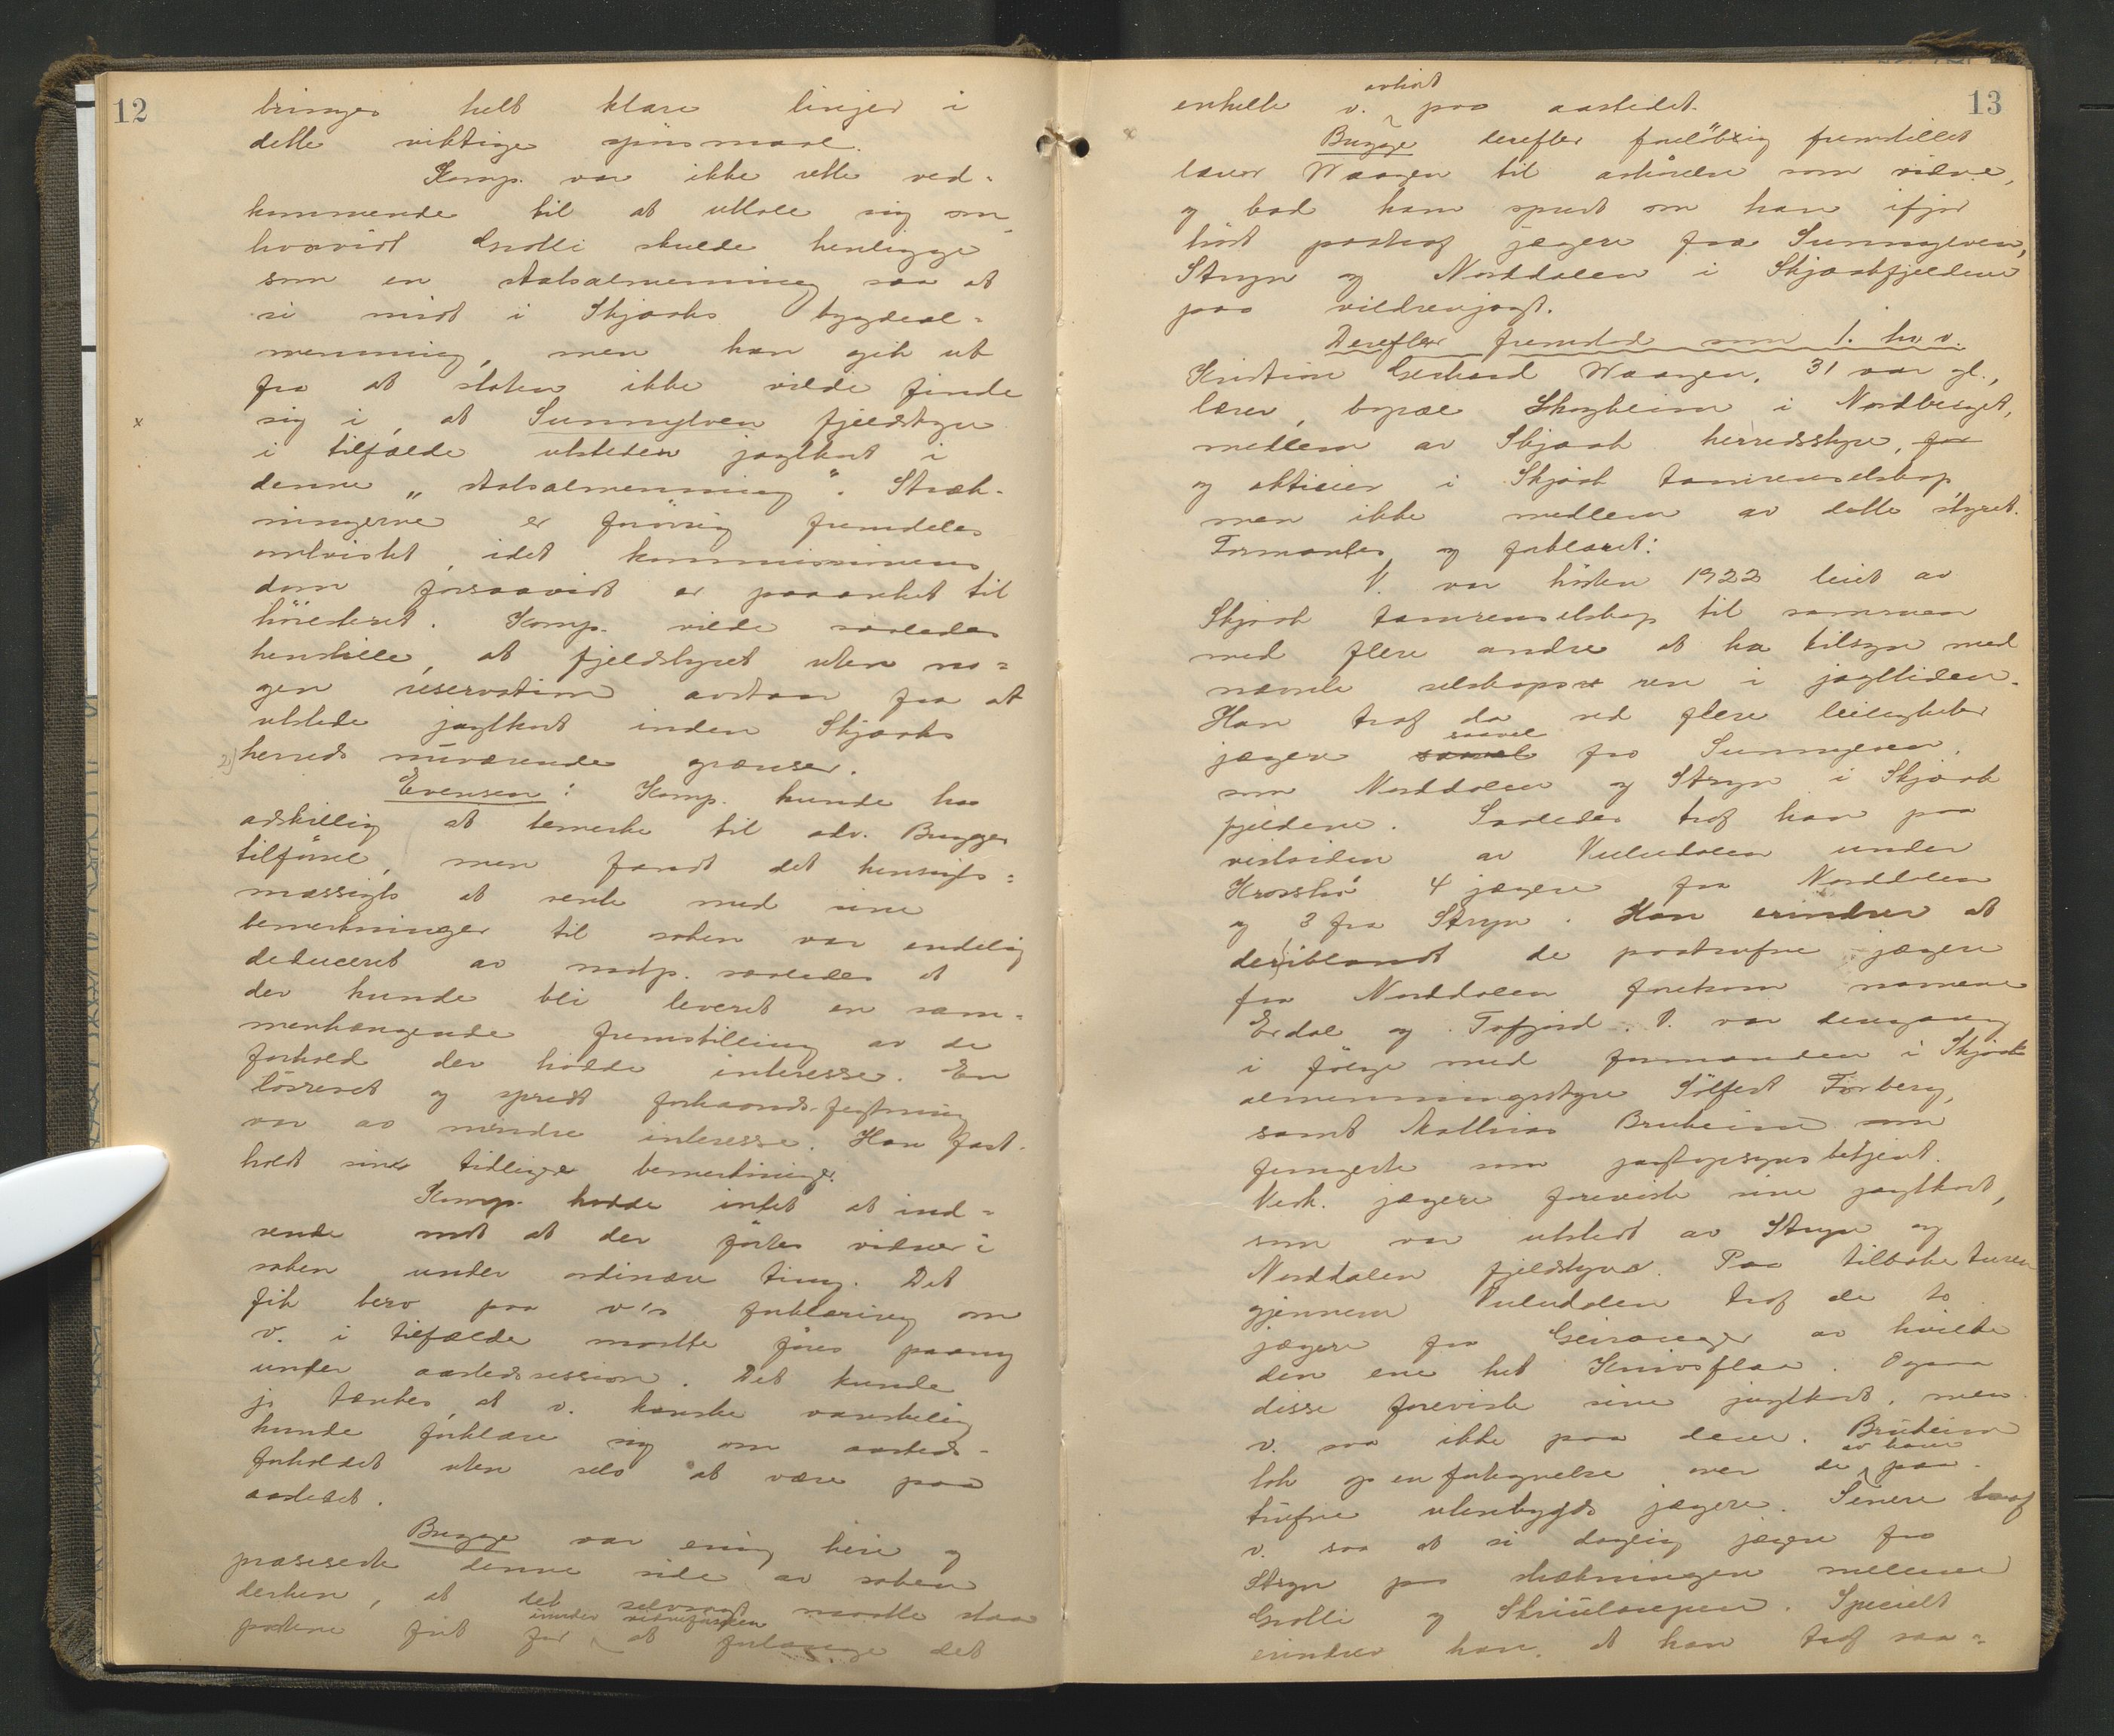 12
bringes helt klare linjer i
dette viktige spörsmaal.
Komp. var ikke rette ved-
kommende til at uttale sig om
hvorvidt Grotli skulde henligge
som en statsalmenning saa at
si midt i Skjaaks bygdeal-
menning, men han gik ut
fra at staten ikke vilde finde
sig i, at Sunnylven fjeldstyre
i tilfælde utsteder jagtkort i
denne "statsalmenning". Stræk-
ningerne er forövrig fremdeles
omtvistet, idet kommissionens
dom forsaavidt er paaanket til
höiesteret. Komp. vilde saaledes
henstille, at fjeldstyret uten no-
gen reservation avstaar fra at
utstede jagtkort inden Skjaaks
herreds nuværende grænser.
Evensen: Komp. kunde ha
adskillig at bemerke til adv. Bugges
tilförsel, men fandt det hensigts-
mæssigts at vente med sine
bemerkninger til saken var endelig
deduceret av motp. saaledes at
der kunde bli leveret en sam-
menhængende fremstilling av de
forhold der hadde interesse. En
lösrevet og spredt forhaands-fegtning
var av mindre interesse. Han fast-
holdt sine tidligere bemerkninger.
Komp. hadde intet at ind-
vende mot at der förtes vidner i
saken under ordinære ting. Det
fik bero paa v's forklaring om
v. i tilfælde maatte föres paany
under aastedssession. Det kunde
jo tænkes, at v. kanske vanskelig
kunde forklare sig om aasteds-
forholdet uten selv at være paa
aastedet.
Bugge var enig heri og
præsiserte denne side av saken
derhen, at det selvsagt maatte staa
partene frit for under vidneförselen at forlange det
13
enkelte v. avhört paa aastedet.
Bugge derefter foreløbig fremstillet
lærer Waagen til avhörelse som vidne,
og bad ham spurt om han ifjor
höst paatraf jægere fra Sunnylven,
Stryn og Norddalen i Skjaakfjeldene
paa vildrenjagt.
Derefter fremstod som 1. hv.
Kristian Gerhard Waagen, 31 aar gl.,
lærer, bopæl Skogheim i Nordberget,
medlem av Skjaak herredsstyre, for
og aktieier i Skjaak tamrenselskap
men ikke medlem av dette styret.
Formantes og forklaret:
V. var hösten 1922 leiet av
Skjaak tamrenselskap til sammen
med flere andre at ha tilsyn med
nævnte selskaps ren i jagttiden.
Han traf da ved flere leiligheter
jægere saavel fra Sunnylven,
som Norddalen og Stryn i Skjaak
fjeldene. Saaledes traf han paa
vestsiden av Vuludalen under
Krosshö 4 jægere fra Norddalen
og 3 fra Stryn. Han erindrer at
deriblandt de paatrufne jægere
fra Norddalen forekom navnene
Erdal og Tafjord. V. var dengang
i fölge med formanden i Skjaak
almenningsstyre Sölfest Forberg,
samt Mathias Bruheim som
fungerte som jagtopsynsbetjent.
Vedk. jægere foreviste sine jagtkort,
som var utstedt av Stryn og
Norddalen fjeldstyre. Paa tilbaketuren
gjennem Vuludalen traf de to
jægere fra Geiranger av hvilke
den ene het Knivsflaa. Ogsaa
disse foreviste sine jagtkort, men
v. saa ikke paa dem. Bruheim
tok op en fortegnelse over de av ham paa-
trufne utenbygds jægere. Senere traf
v. saa at si daglig jægere fra
Stryn paa strækningen mellem
Grotli og Skridulaupen. Specielt
erindrer han, at han traf saa-